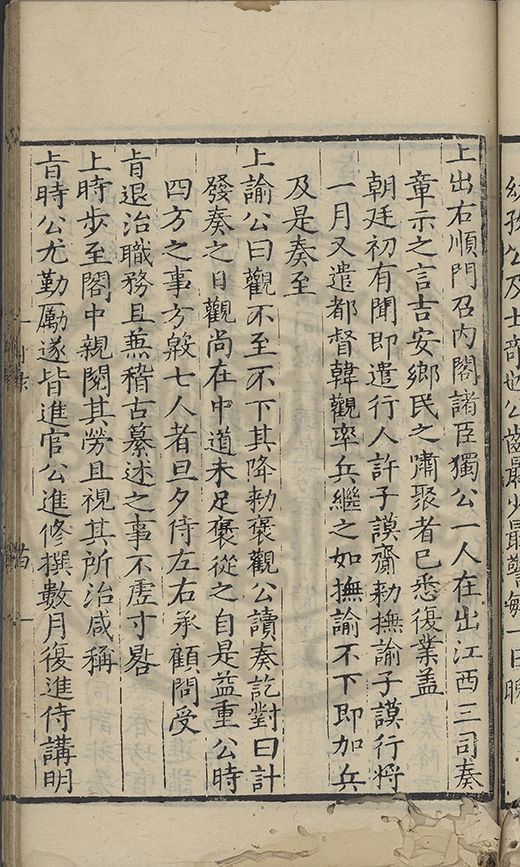 幼孜公及士奇也公齒最少最警敏一日晚
上出右順門召内閣諸臣獨公一人在出江西三司奏
章示之言吉安鄉民之嘯聚者已悉復業盖
朝廷初有聞即遣行人許子謨齎勑撫諭子謨行將
一月又遣都督韓觀率兵繼之如撫諭不下即加兵
及是奏至
上諭公曰觀不至不下其降勑褒觀公讀奏訖對曰計
發奏之日觀尚在中道未足褒從之自是益重公時
四方之事方殷七人者旦夕侍左右承顧問受
㫖退治職務且兼稽古纂述之事不虛寸晷
上時步至閣中親閱其勞且視其所治咸稱
㫖時公尤勤勵遂皆進官公進修撰數月復進侍講明